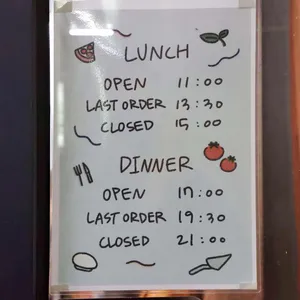 LUNCH
OPEN 11:00
LAST ORDER 13:30
CLOSED 15:00
DINNER
OPEN 17:00
LAST ORDER 19:30
CLOSED 21:00